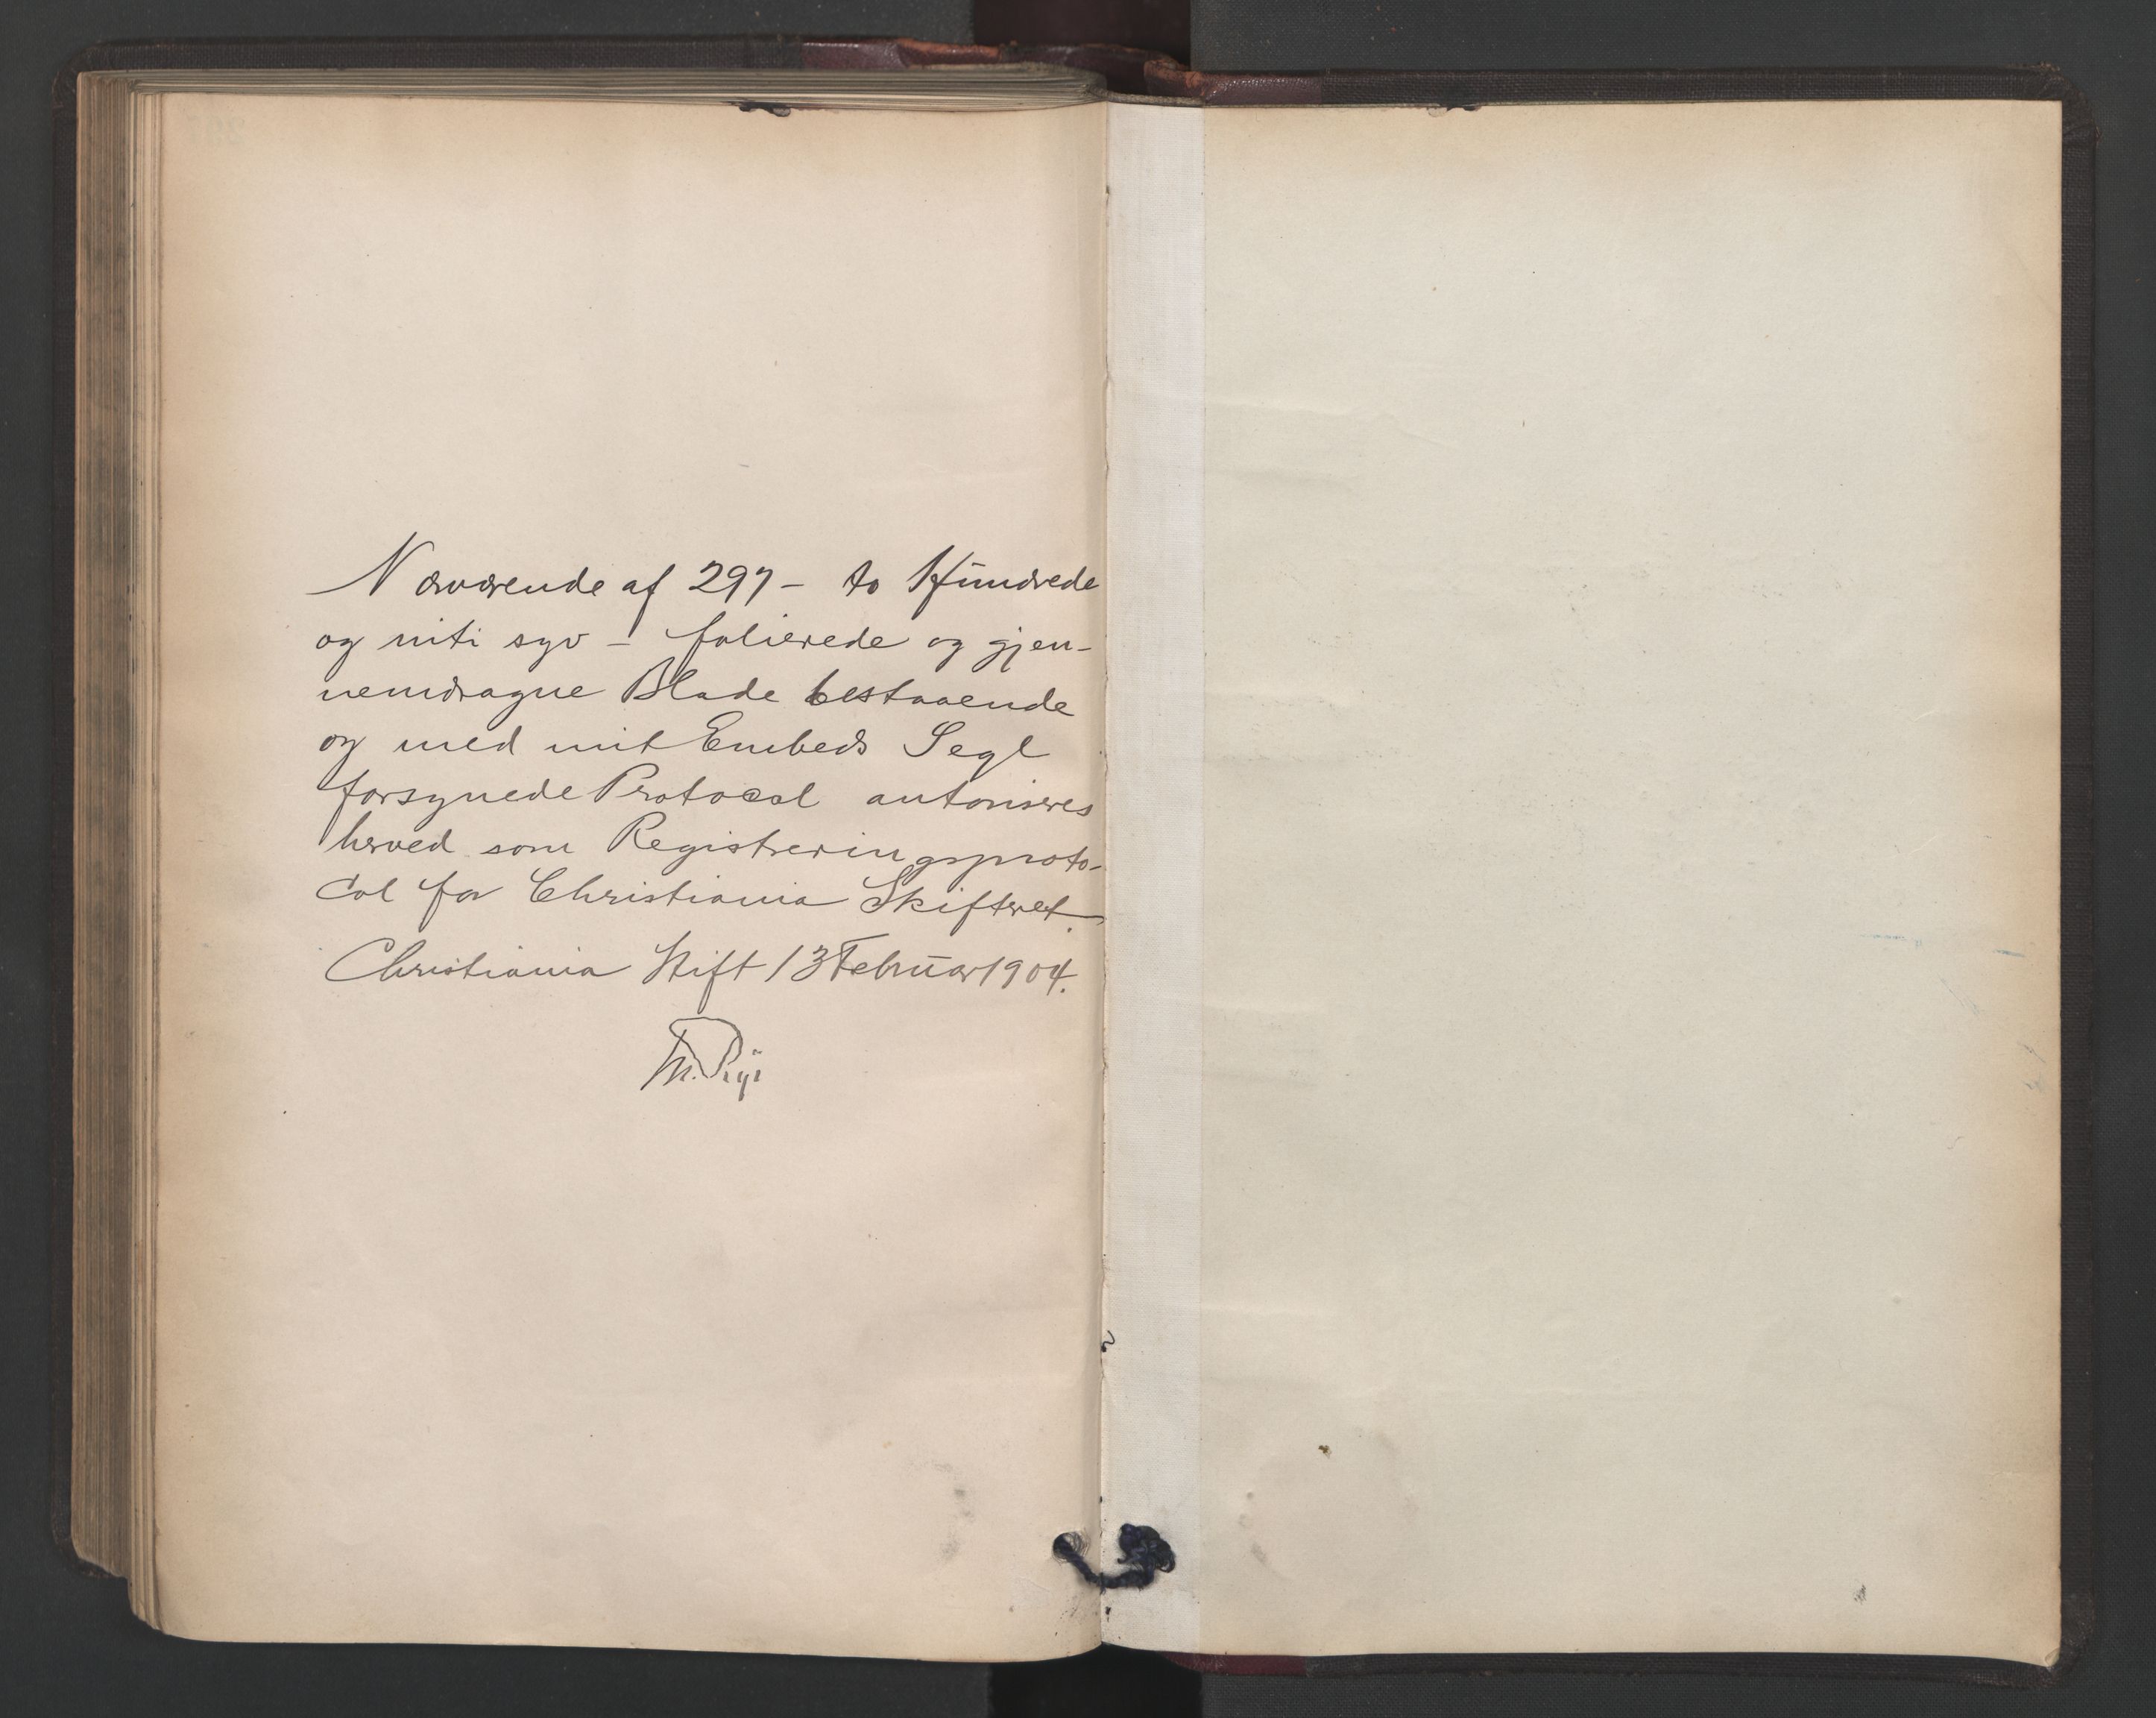 Nærværende af 297 – to Hundrede
og niti syv – folierede og gjen-
nemdragne Blade bestaaende
og med mit Embeds Segl
forsynede Protocol autoriseres
herved som Registreringsproto-
col for Christiania Skifteret.
Christiania Stift 13 Februar 1904.